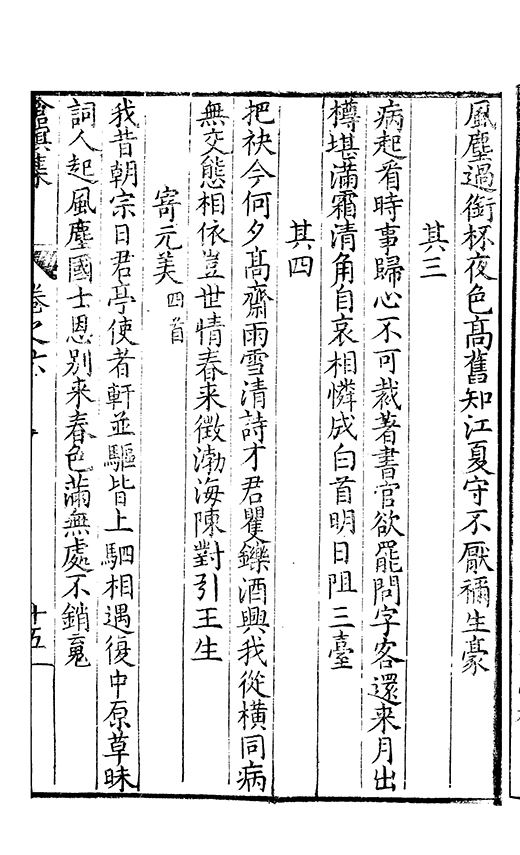 風塵過銜杯夜色髙舊知江夏守不厭禰生豪
其三
病起看時事歸心不可裁著書官欲罷問字客還来月出
樽堪滿霜清角自哀相憐成白首明日阻三臺
其四
把袂今何夕髙齋雨雪清詩才君矍鑠酒興我從横同病
無交態相依豈世情春来徵渤海陳對引王生
寄元美四首
我昔朝宗日君亭使者軒並驅皆上駟相遇復中原草昧
詞人起風塵國士恩别来春色滿無處不銷䰟
滄溟集 卷之六 十五